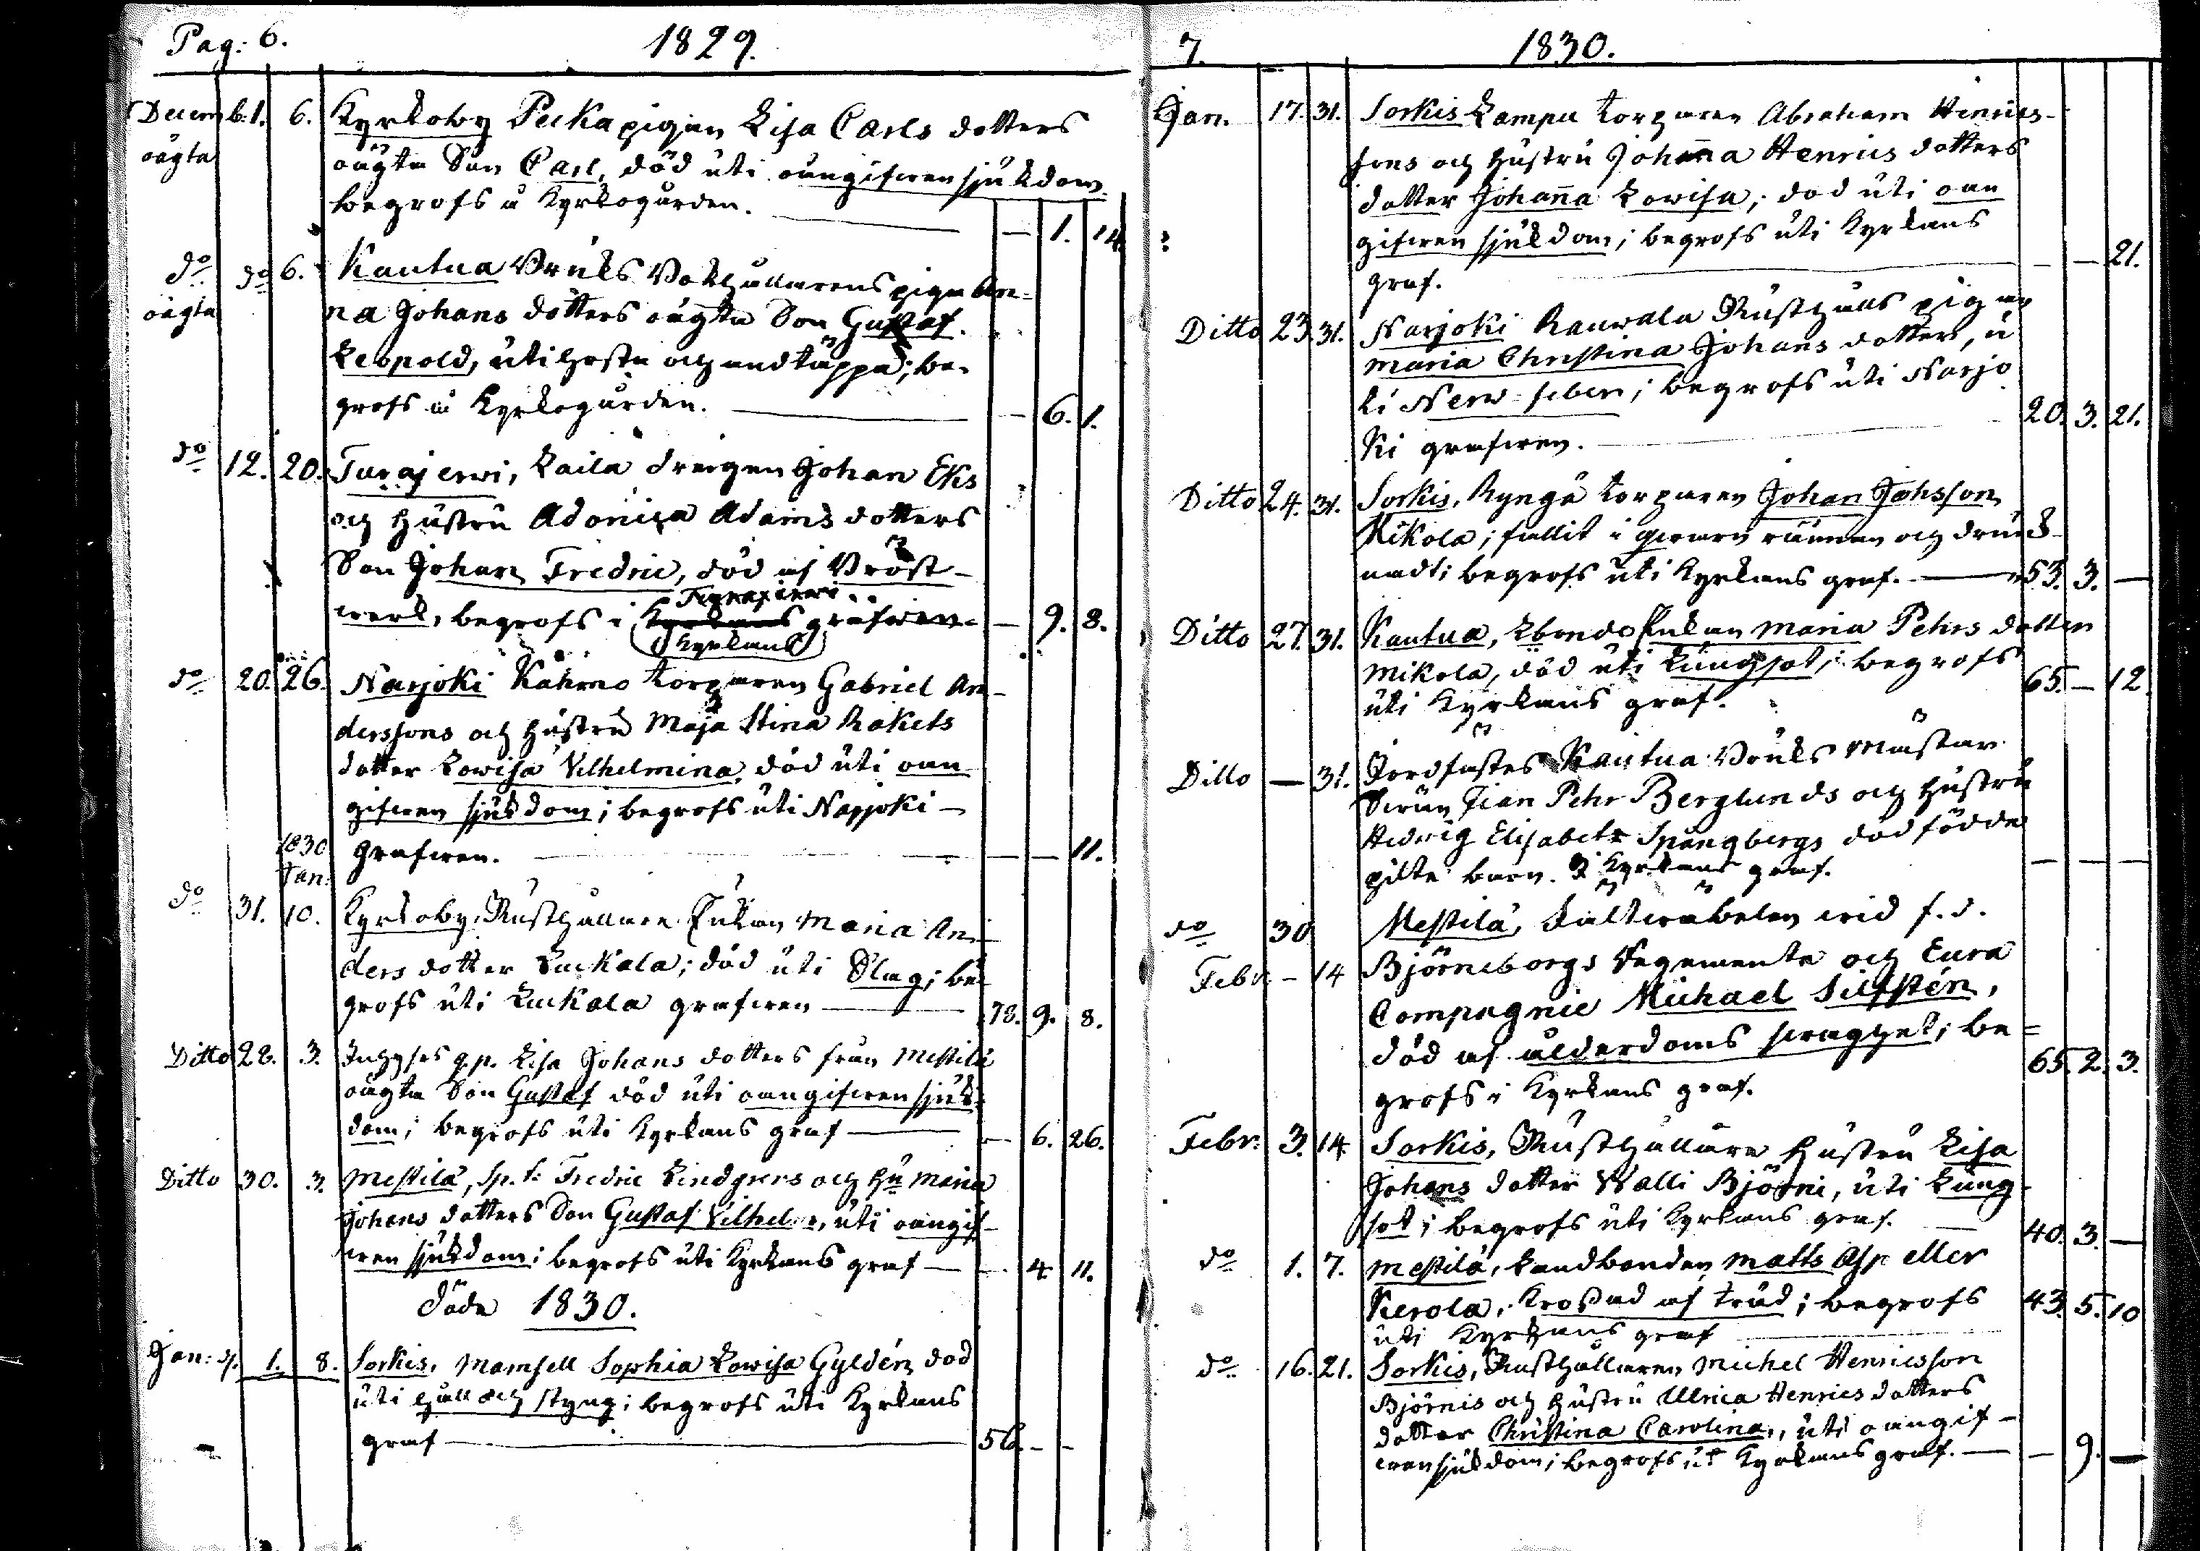 Pag: 6. 1829.
Decemb. 1. 6. Kyrkoby Pecka pigan Lisa Carls dotters
oägta oägta Son Carl, död uti oangifven sjukdom
begrofs å Kyrkogården. — 1. 14
do do 6. Kautua Bruks Vakthållarens piga An-
oägta na Johans dotters oägta Son Gustaf
Leopold, uti hosta och andtäppa; be-
grofs å Kyrkogården. — 6. 1.
do 12. 20. Turajerwi, Laila drängen Johan Eks
och hustru Adoniza Adams dotters
Son Johan Fredric, död af Bröst-
werk, begrofs i Kyrkans grafwen — 9. 8.
do 20. 26. Narjoki Kahmo torparen Gabriel An-
derssons och hustru Maja Stina Rakels
dotter Lowisa Vilhelmina, död uti oan
gifwen sjukdom; begrofs uti Narjoki —
grafwen. — — 11.
1830
Jan:
do 31. 10. Kyrkoby, Rusthållare Enkan Maria An-
ders dotter Luckala; död uti Slag; be
grofs uti Luckala grafwen — 78. 9. 8.
Ditto 28. 3. Inhyses q.p. Lisa Johans dotters från Mestilä
oägta Son Gustaf död uti oangifwen sjuk-
dom; begrofs uti Kyrkans graf — 6. 26.
Ditto 30. 3. Mestilä, Sp. k. Fredric Lindgrens och hu Maria
Johans dotters Son Gustaf Vilhelm, uti oangif-
wen sjukdom; begrofs uti Kyrkans graf — 4. 11.
Döde 1830.
Jan: 1. 8. Sorkis, Mamsell Sophia Lowisa Gyldén, död
uti håll och styng; begrofs uti Kyrkans
graf — 56 - -
7. 1830.
Jan. 17. 31. Sorkis Lampu torparen Abraham Henrics-
sons och hustru Johanna Henrics dotters
dotter Johanna Lowisa, död uti oan
gifwen sjukdom; begrofs uti Kyrkans
graf. — — 21.
Ditto 23. 31. Narjoki Rauwala Rusthålls pigan
Maria Christina Johans dotter, i
ki Nerw-feber; begrofs uti Narjo
ki grafwen. — 20. 3. 21.
Ditto 24. 31. Sorkis, Ryngä torparen Johan Johsson
Mikola; fallit i qwarn rännan och drunk-
nadt; begrofs uti Kyrkans graf. — 53. 3. —
Ditto 27. 31. Kautua, Lbonde Enkan Maria Pehrs dotter
Mikola, död uti Lungsot; begrofs
uti Kyrkans graf. 65. — 12.
Ditto — 31. Jordfästes Kautua Bruks Mästar
Swän Jean Pehr Berglunds och hustru
Hedwig Elisabeth Spångbergs dödfödde
gilte barn. I Kyrkans graf. — — —
do 30 Mestilä, Fältwäbelen wid f.d.
Febr. - 14 Björneborgs Regemente och Eura
Compagnie Michael Silfstén,
död af ålderdoms swaghet; be=
grofs i Kyrkans graf. 65. 2. 3.
Febr. 3. 14 Sorkis, Rusthållare hustru Lisa
Johans dotter Walli Björni, uti Lung-
sot; begrofs uti Kyrkans graf. — 40. 3. —
do 1. 7. Mestilä, Landbonden Matts Asp eller
Kerola, Krossad af träd; begrofs 43. 5. 10
uti Kyrkans graf
do 16. 21. Sorkis, Rusthållaren Michel Henricsson
Björnis och hustru Ulrica Henrics dotters
dotter Christina Carolina, uti oangif-
wen sjukdom; begrofs ut Kyrkans graf. — — 9. —